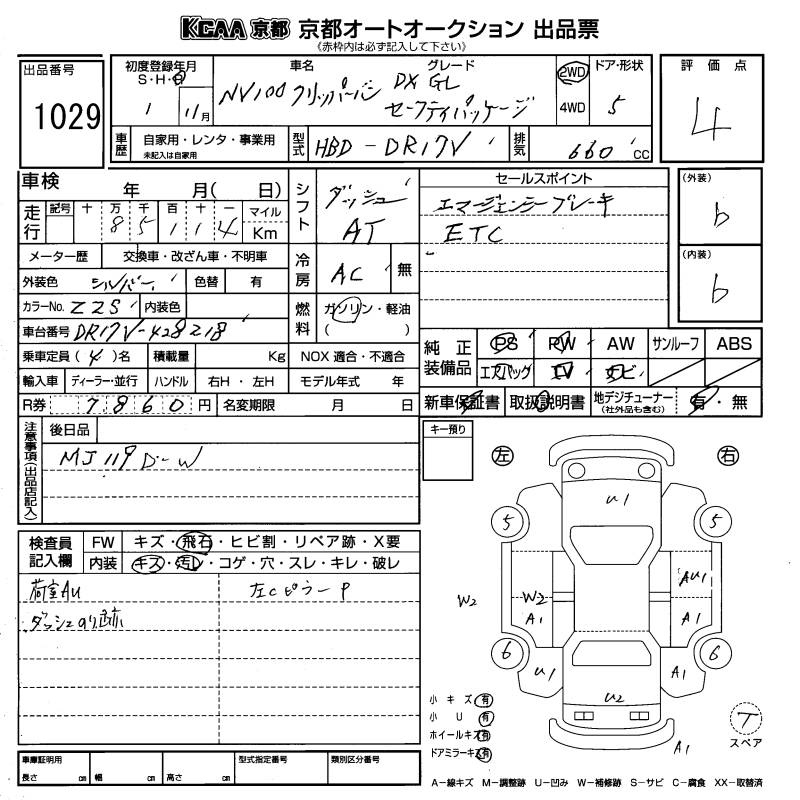 KCAA 京都 京都オートオークション 出品票
《赤枠内は必ず記入して下さい》
出品番号
1029
初度登録年月
S・H・R
1 11月
車名 グレード
NV100クリッパーバン DX GL
セーフティパッケージ
2WD
4WD
ドア・形状
5
評価点
4
車歴 自家用・レンタ・事業用
未記入は自家用
型式 HBD-DR17V
排気 660 CC
車検 年 月( 日)
走行 記号 十 万 千 百 十 一 マイル
8 5 1 1 4 Km
メーター歴 交換車・改ざん車・不明車
外装色 シルバー 色替 有
カラーNo. Z2S 内装色
車台番号 DR17V-428218
乗車定員 (4)名 積載量 Kg
輸入車 ディーラー・並行 ハンドル 右H・左H
R券 7860円 名変期限 月 日
シフト ダッシュ
AT
冷房 AC 無
燃料 ガソリン・軽油
( )
NOX 適合・不適合
モデル年式 年
セールスポイント
エマージェンシーブレーキ
ETC
(外装)
b
(内装)
b
純正装備品 PS PW AW サンルーフ ABS
エアバッグ TV ナビ
新車保証書 取扱説明書 地デジチューナー
(社外品も含む)
有・無
注意事項(出品店記入)
後日品
MJ119D-W
キー預り
左 右
検査員記入欄 FW キズ・飛石・ヒビ割・リペア跡・X要
内装 キズ・汚レ・コゲ・穴・スレ・キレ・破レ
荷室AU 左Cピラー P
ダッシュのり跡
U1
5 5
W2 W2 AU1
A1 A1
6 6
U1 A1
U2
A1
小キズ 有
小U 有
ホイールキズ 有
ドアミラーキズ 有
T
スペア
車庫証明用
長さ cm 幅 cm 高さ cm
型式指定番号 類別区分番号
A-線キズ M-調整跡 U-凹み W-補修跡 S-サビ C-腐食 XX-取替済